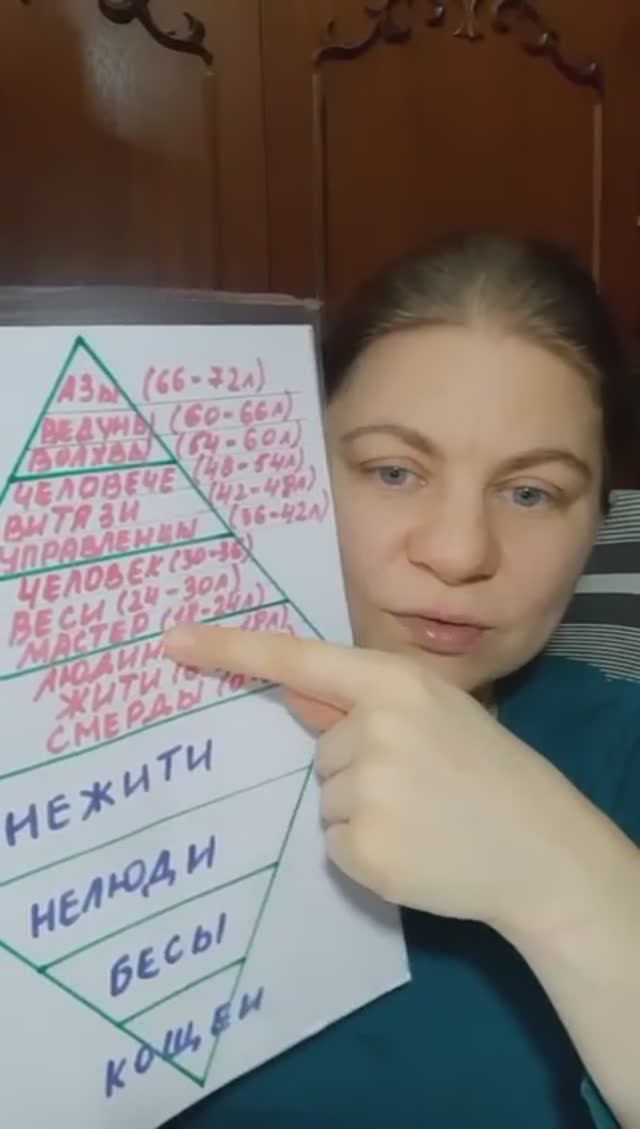 АЗЫ (66-72л)
ВЕДУНЫ (60-66л)
ВОЛХВЫ (54-60л)
ЧЕЛОВЕЧЕ (48-54л)
ВИТЯЗИ (42-48л)
УПРАВЛЕНЦЫ (36-42л)
ЧЕЛОВЕК (30-36)
ВЕСИ (24-30л)
МАСТЕР (18-24л)
ЛЮДИН
ЖИТИ
СМЕРДЫ
НЕЖИТИ
НЕЛЮДИ
БЕСЫ
КОЩЕИ